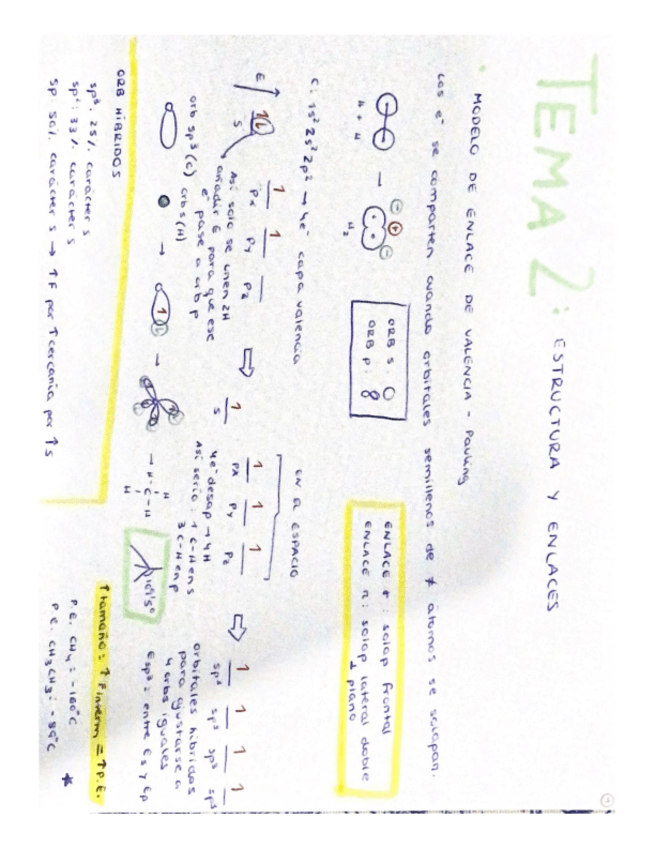 TEMA 2: ESTRUCTURA Y ENLACES
MODELO DE ENLACE DE VALENCIA - Pauling
Los e⁻ se comparten cuando orbitales semillenos de ≠ átomos se solapan.
H + H → H₂
ORB s:
ORB p:
ENLACE σ: solap frontal
ENLACE π: solap lateral doble
⊥ plano
C: 1s² 2s² 2p² → 4e⁻ capa valencia
EN EL ESPACIO
E
s px py pz
s px py pz
sp³ sp³ sp³ sp³
Así solo se unen 2H
añadir E para que ese
e⁻ pase a orb p
4e⁻ desap → 4H
Así sería: 1 C-H en s
3 C-H en p
orbitales híbridos
para ajustarse a
4 orbs iguales
Esp³: entre Es y Ep
orb sp³ (C) orb s (H)
H
H-C-H
H
109'5°
ORB HÍBRIDOS
sp³: 25% carácter s
sp²: 33% carácter s
sp 50% carácter s → ↑F por ↑cercanía por ↑s
↑tamaño: ↑Finterm = ↑P.E.
P.E. CH₄: -160°C
P.E. CH₃CH₃: -89°C *